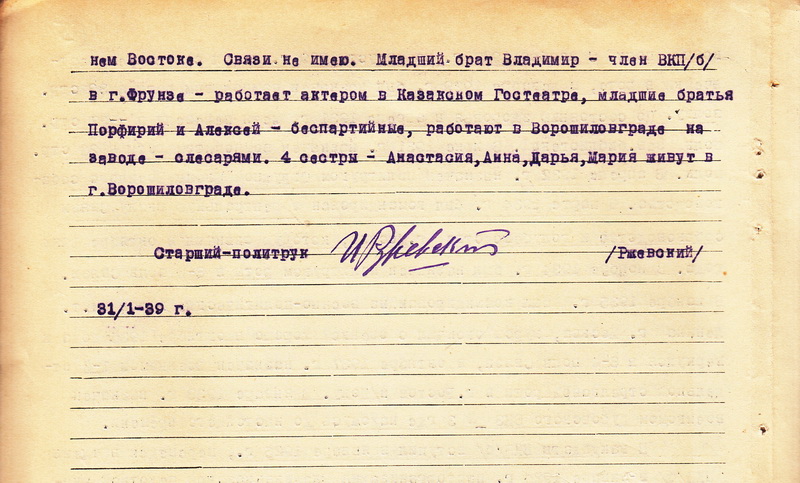 нем Востоке. Связи не имею. Младший брат Владимир - член ВКП/б/
в г.Фрунзе - работает актером в Казакском Гостеатре, младшие братья
Порфирий и Алексей - беспартийные, работают в Ворошиловграде на
заводе - слесарями. 4 сестры - Анастасия,Анна,Дарья,Мария живут в
г.Ворошиловграде.
Старший-политрук ИРжевский /Ржевский/
31/1-39 г.